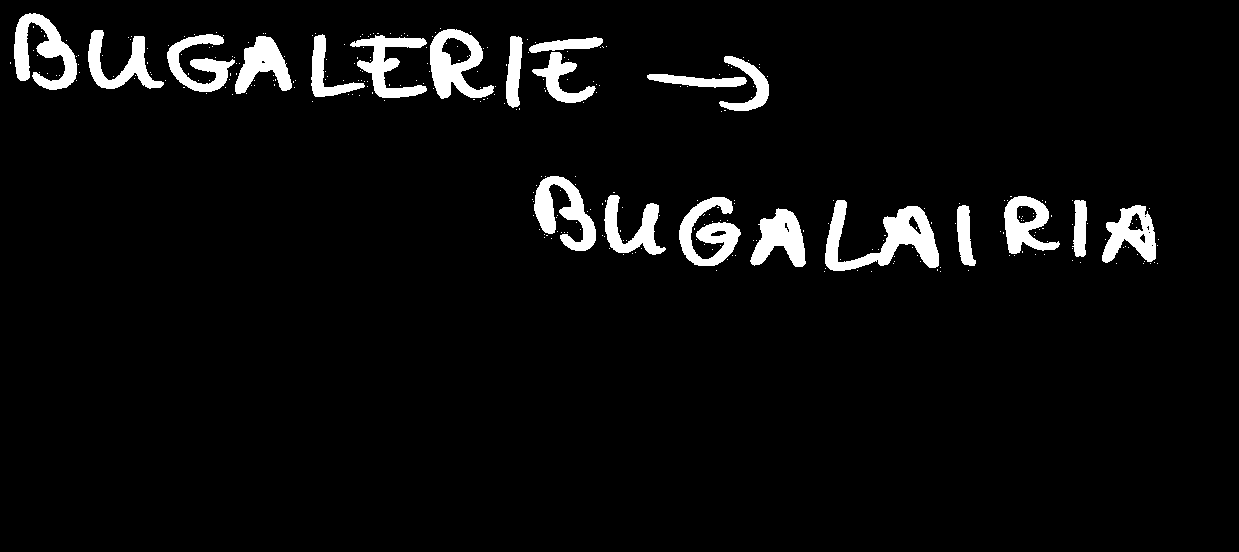 BUGALERIE →
BUGALAIRIA